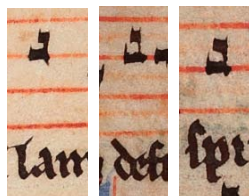 lam defi spi